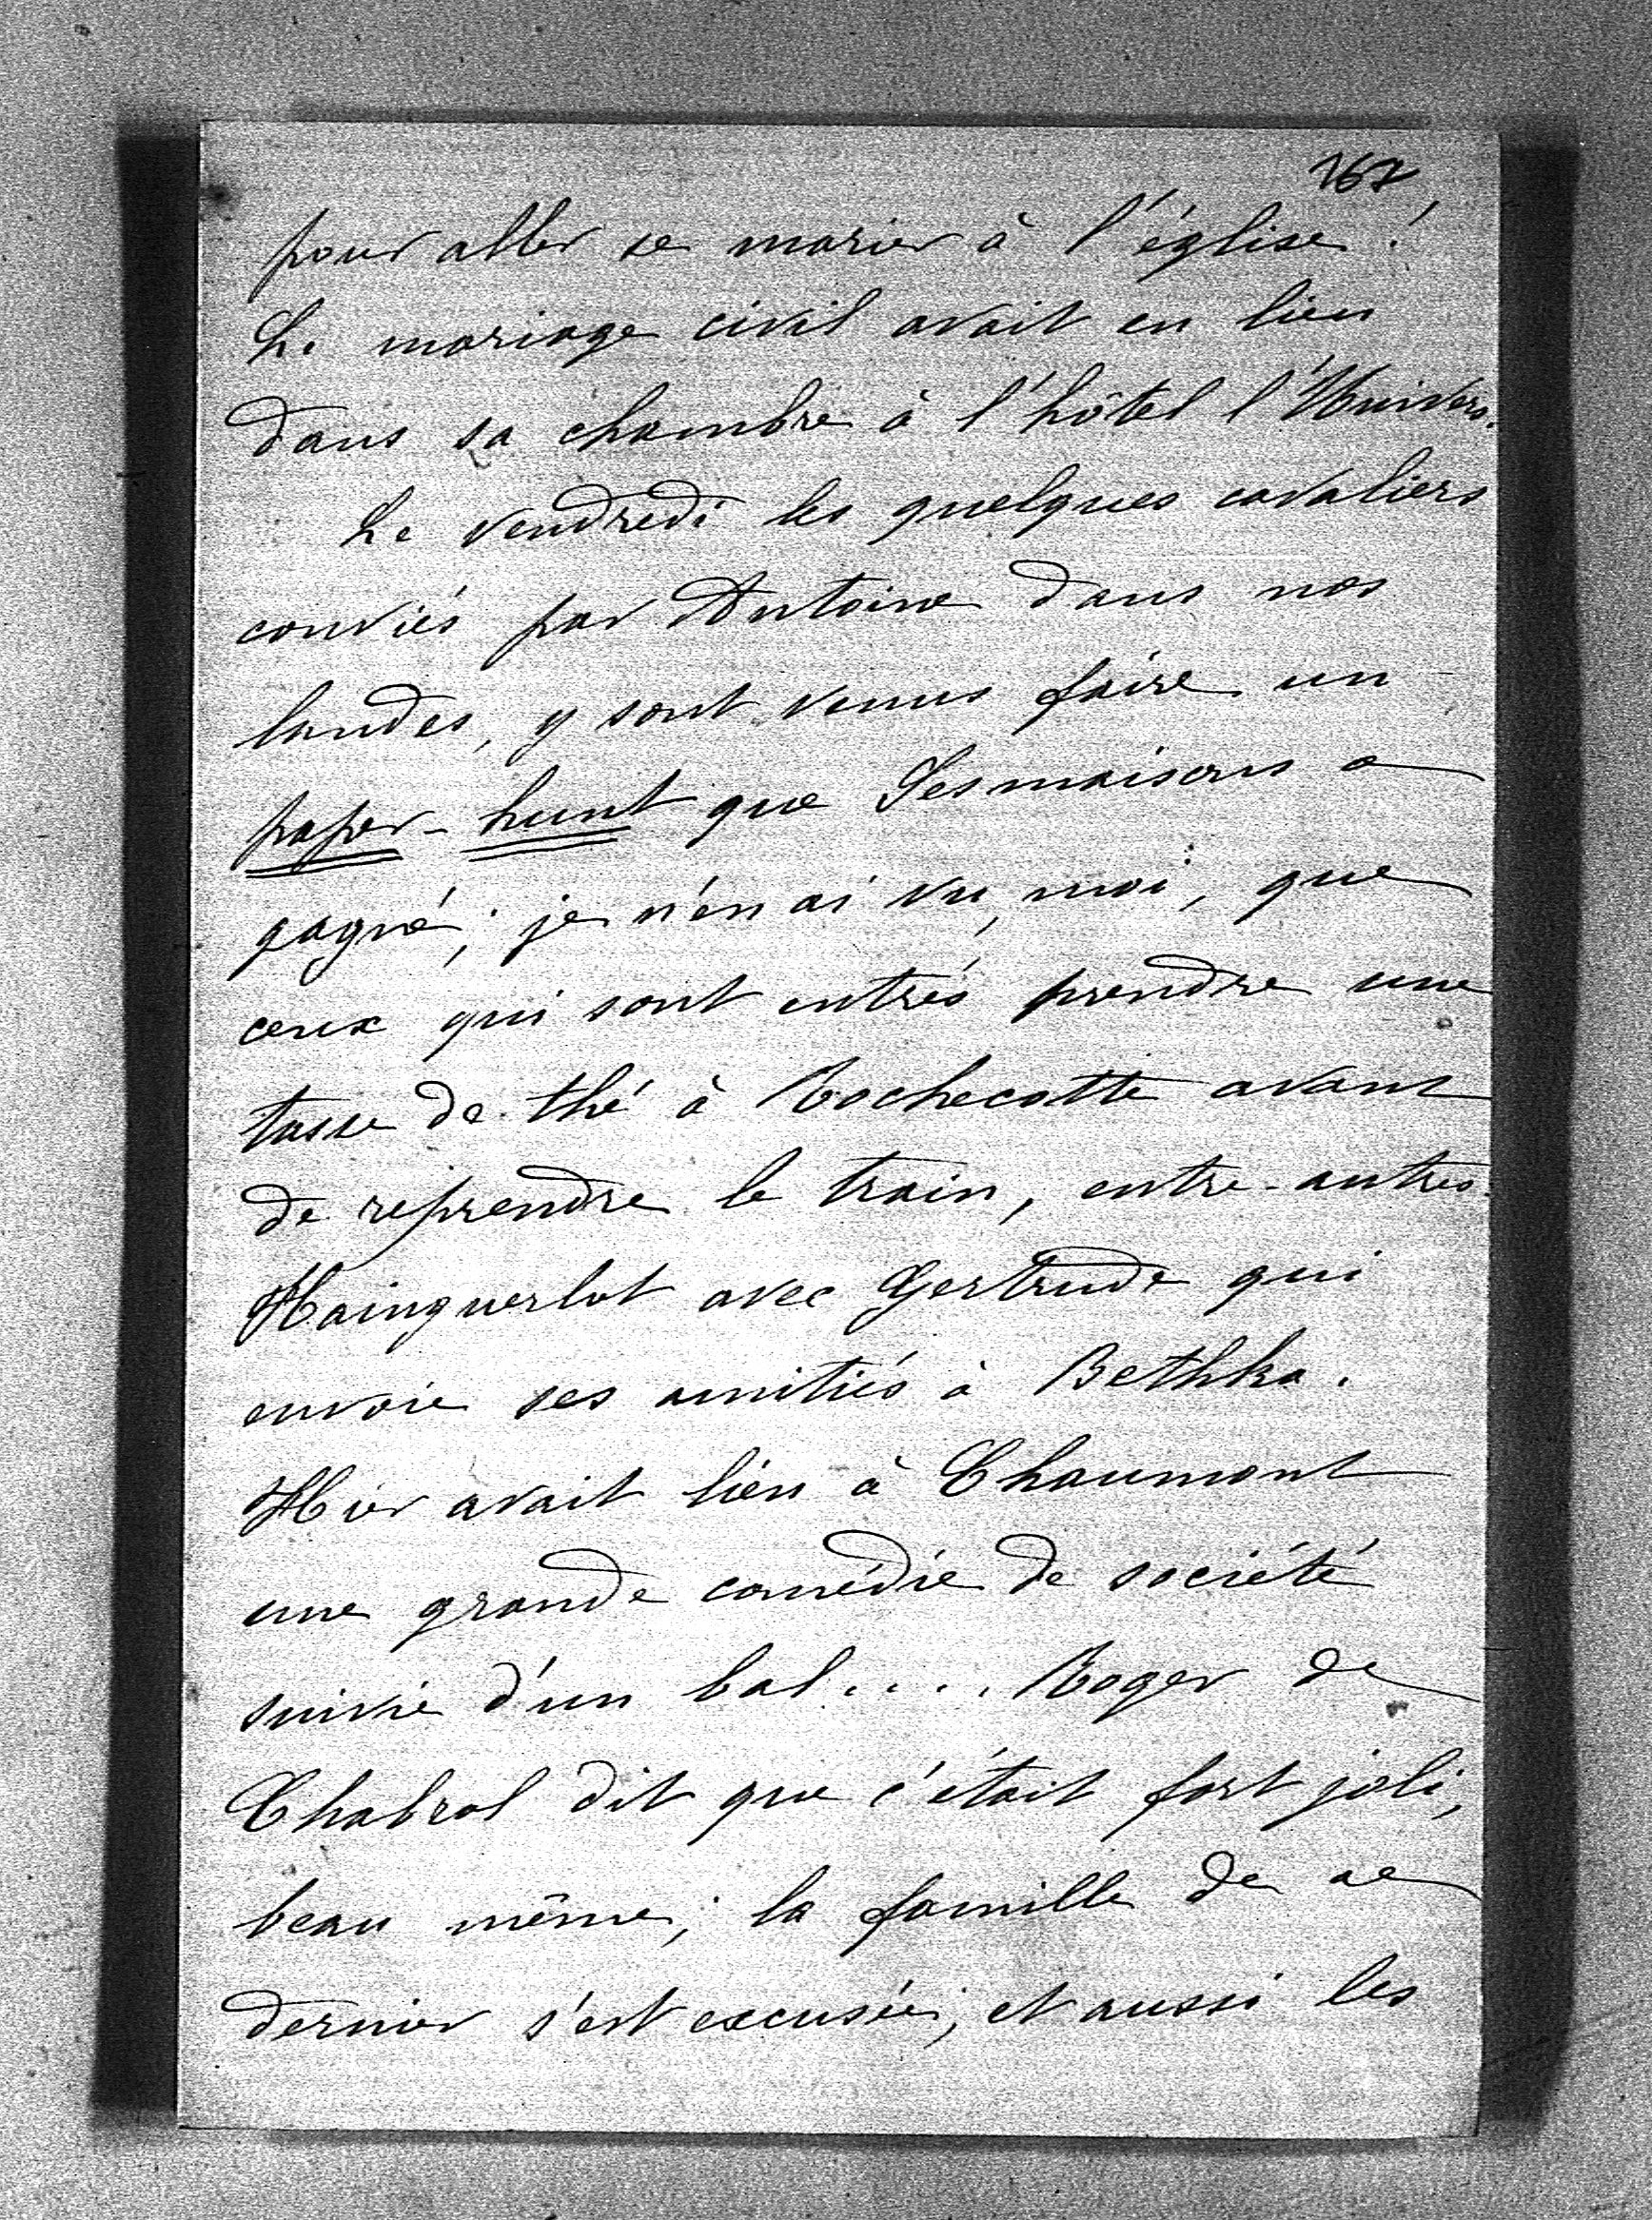 167
pour aller se marier à l'église!
Le mariage civil avait eu lieu
dans sa chambre à l'hôtel l'Univers.
Le vendredi les quelques cavaliers
conviés par Antoine dans nos
landes, y sont venus faire un
paper-hunt que Sesmaisons a
gagné; je n'en ai vu, moi, que
ceux qui sont entrés prendre une
tasse de thé à Rochecotte avant
de reprendre le train, entre-autres
Hainguerlot avec Gertrude qui
envoie ses amitiés à Bethka.
Hier avait lieu à Chaumont
une grande comédie de société
suivie d'un bal.... Roger de
Chabrol dit que c'était fort joli,
beau même; la famille de ce
dernier s'est excusée, et aussi les